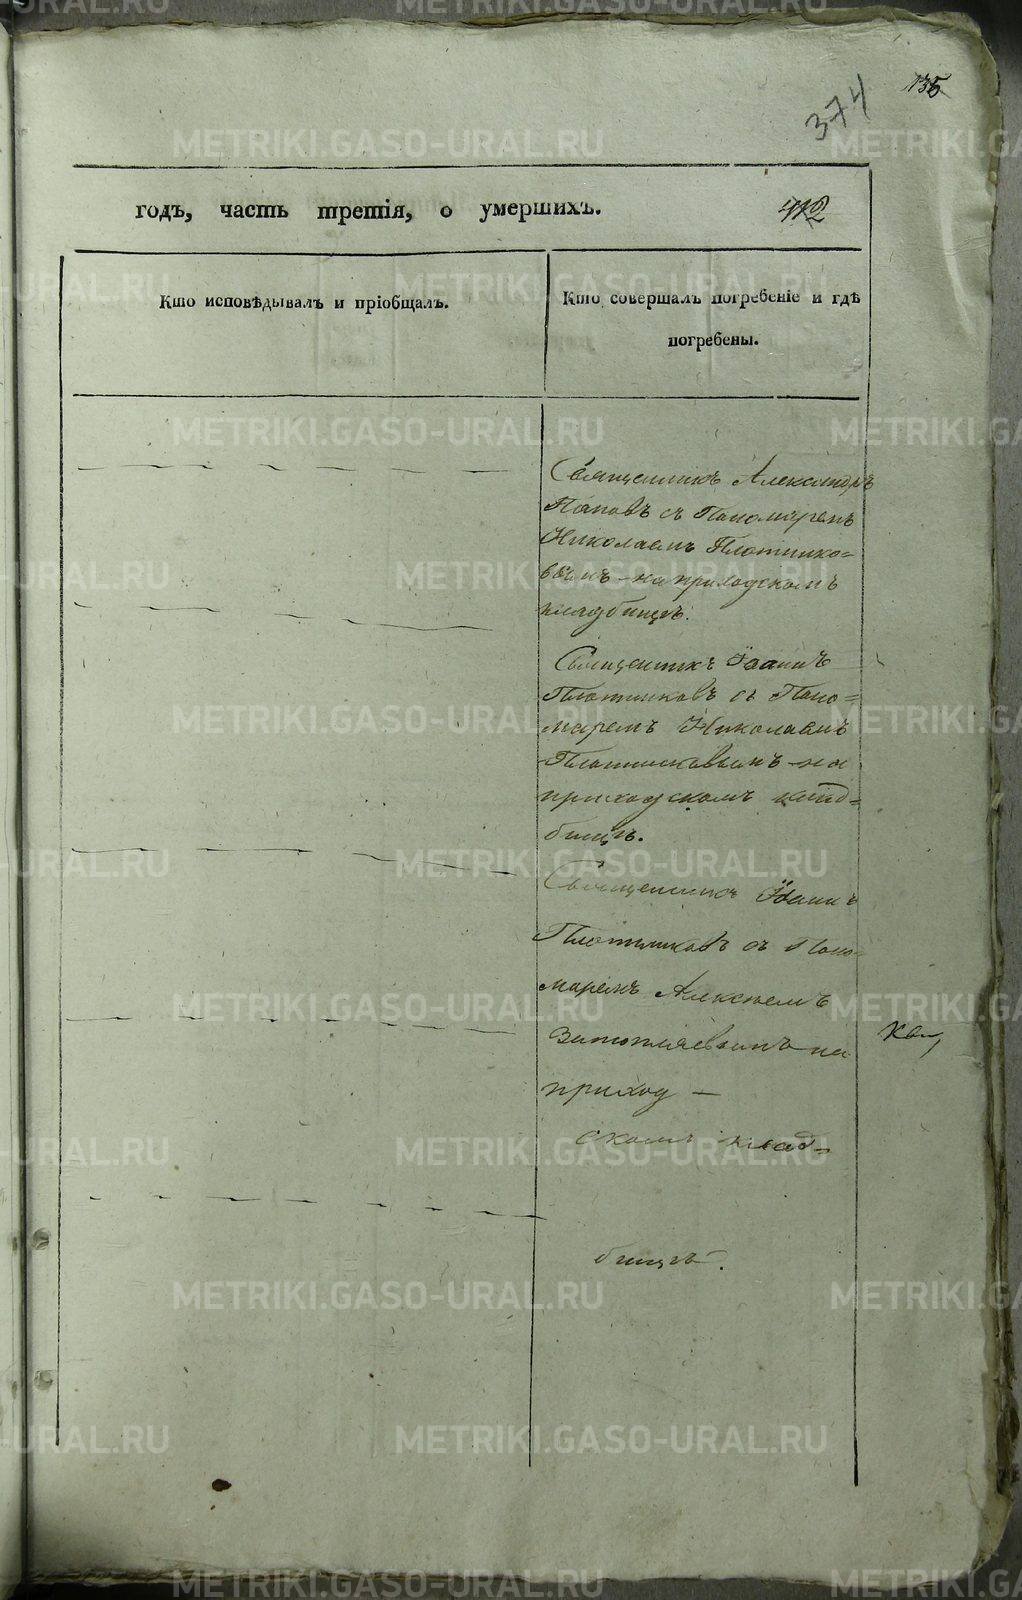 135
374
годъ, часть третія, о умершихъ.
412
Кто исповѣдывалъ и пріобщалъ.
Кто совершалъ погребеніе и гдѣ
погребены.
Священникъ Александръ
Поповъ съ Пономаремъ
Николаемъ Плотнико=
вымъ - на приходскомъ
кладбищѣ.
Священникъ Іоаннъ
Плотниковъ съ Поно=
маремъ Николаемъ
Плотниковымъ - на
приходскомъ клад=
бищѣ.
Священникъ Іоаннъ
Плотниковъ съ Поно=
маремъ Алексѣемъ
на
приход —
скомъ клад=
бищѣ.
METRIKI.GASO-URAL.RU